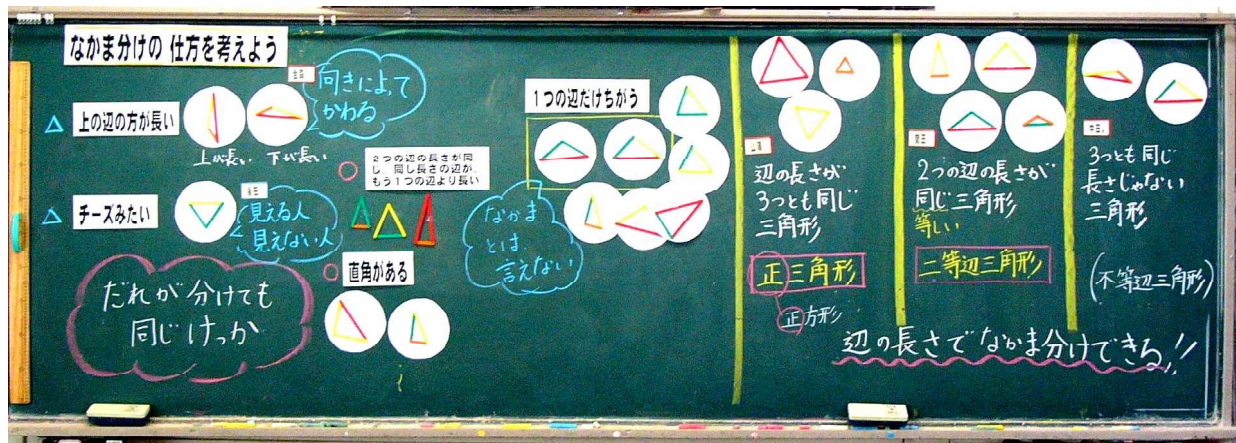 なかま分けの 仕方を考えよう
上の辺の方が長い
上が長い 下が長い
向きによって
かわる
チーズみたい
見える人
見えない人
だれが分けても
同じけっか
2つの辺の長さが同
じ、同じ長さの辺が、
もう1つの辺より長い
直角がある
1つの辺だけちがう
なかま
とは、
言えない
辺の長さが
3つとも同じ
三角形
正三角形
正方形
2つの辺の長さが
同じ三角形
等しい
二等辺三角形
3つとも同じ
長さじゃない
三角形
(不等辺三角形)
辺の長さでなかま分けできる!!